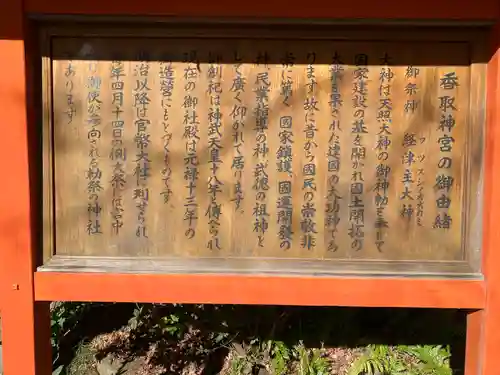 香取神宮の御由緒
フツヌシノオオカミ
御祭神 経津主大神
大神は天照大神の御神勅を奉じて
国家建設の基を開かれ国土開拓の
大業を果された建国の大功神であ
ります故に昔から国民の崇敬非
常に篤く國家鎮護、國運開發の
神民業指導の神武徳の祖神と
して廣く仰がれて居ります。
御創祀は神武天皇十八年と傳へられ
現在の御社殿は元禄十三年の
御造營にもとづくものです。
明治以降は官幣大社に列せられ
毎年四月十四日の例大祭には宮中
より御使が差向される勅祭の神社
であります